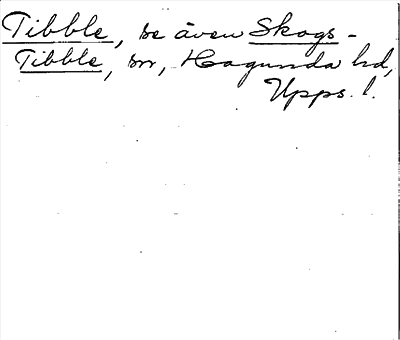 Tibble, se även Skogs-
Tibble, sn, Hagunda hd,
Upps. l.